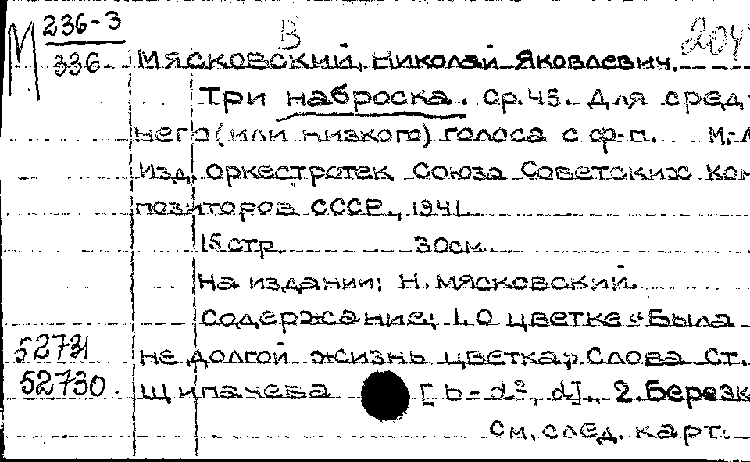 М 236-3 В 204
336 Мясковский, Николай Яковлевич.
Три наброска. Ср.45. Для сред-
него (или низкого) голоса с ф-п. М.-Л
Изд. оркестротек Союза Советских ком
позиторов СССР., 1941.
15 стр. 30см.
На издании: Н. Мясковский.
Содержание: 1. О цветке "Была
52731 не долгой жизнь цветка". Слова Ст.
52730. Щипачева [b-d², d]., 2. Березк
См. след. карт.